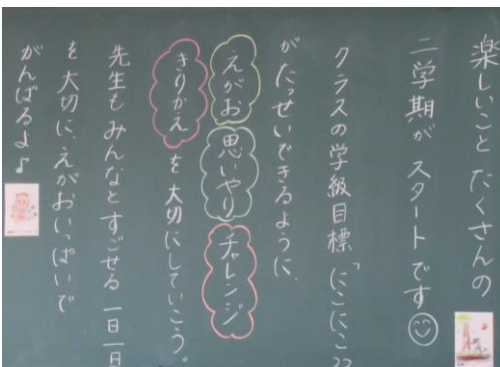 楽しいこと たくさんの
二学期が スタートです
クラスの学級目標「にこにこ
がたっせいできるように、
えがお 思いやり チャレンジ
きりかえ を大切にしていこう。
先生も みんなとすごせる 一日一日
を大切に、えがおいっぱいで
がんばるよ♪